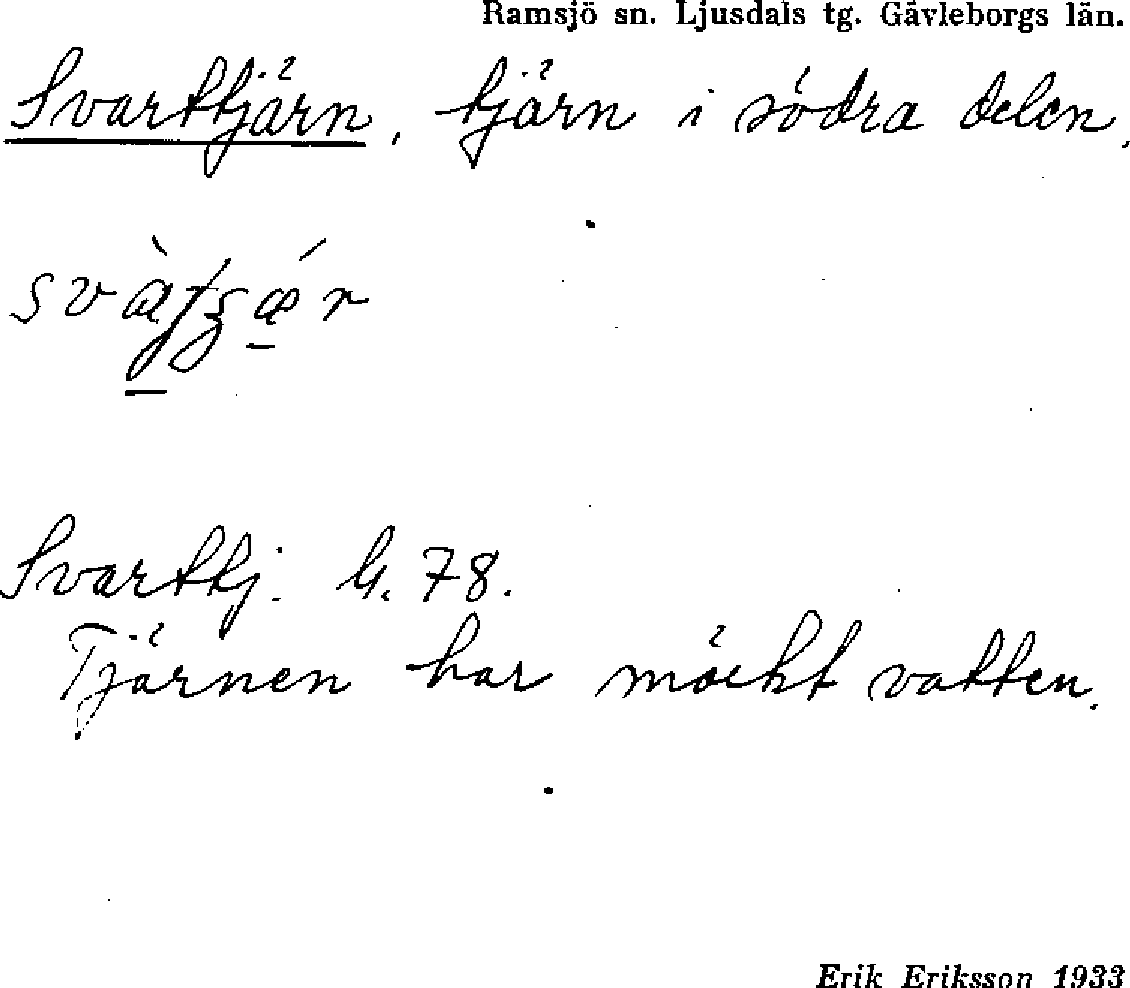 Ramsjö sn. Ljusdals tg. Gävleborgs län.
Svarttjärn, tjärn i södra delen.
Svarttj. G. 78.
Tjärnen har mörkt vatten.
Erik Eriksson 1933